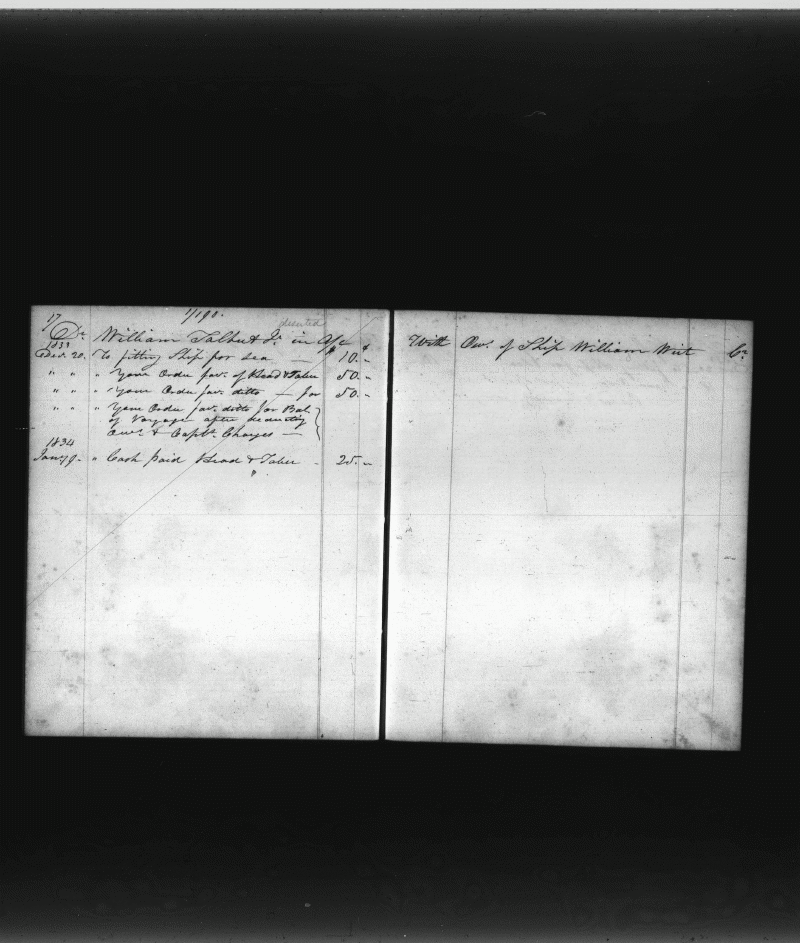 17
1/190.
deserted
Dr William Talbut Jr in A/c
1833
Decr. 20. To fitting Ship for sea — 10.-
" " " Your Order fav. of Read & Taber 50.-
" " " Your Order fav. ditto — for 50.-
" " " Your Order fav. ditto for Bal.
of Voyage after deducting
Own. & Capts. Charges —
1834
Jany 9. " Cash paid Read & Taber . 25.-
With Own. of Ship William Wirt Cr